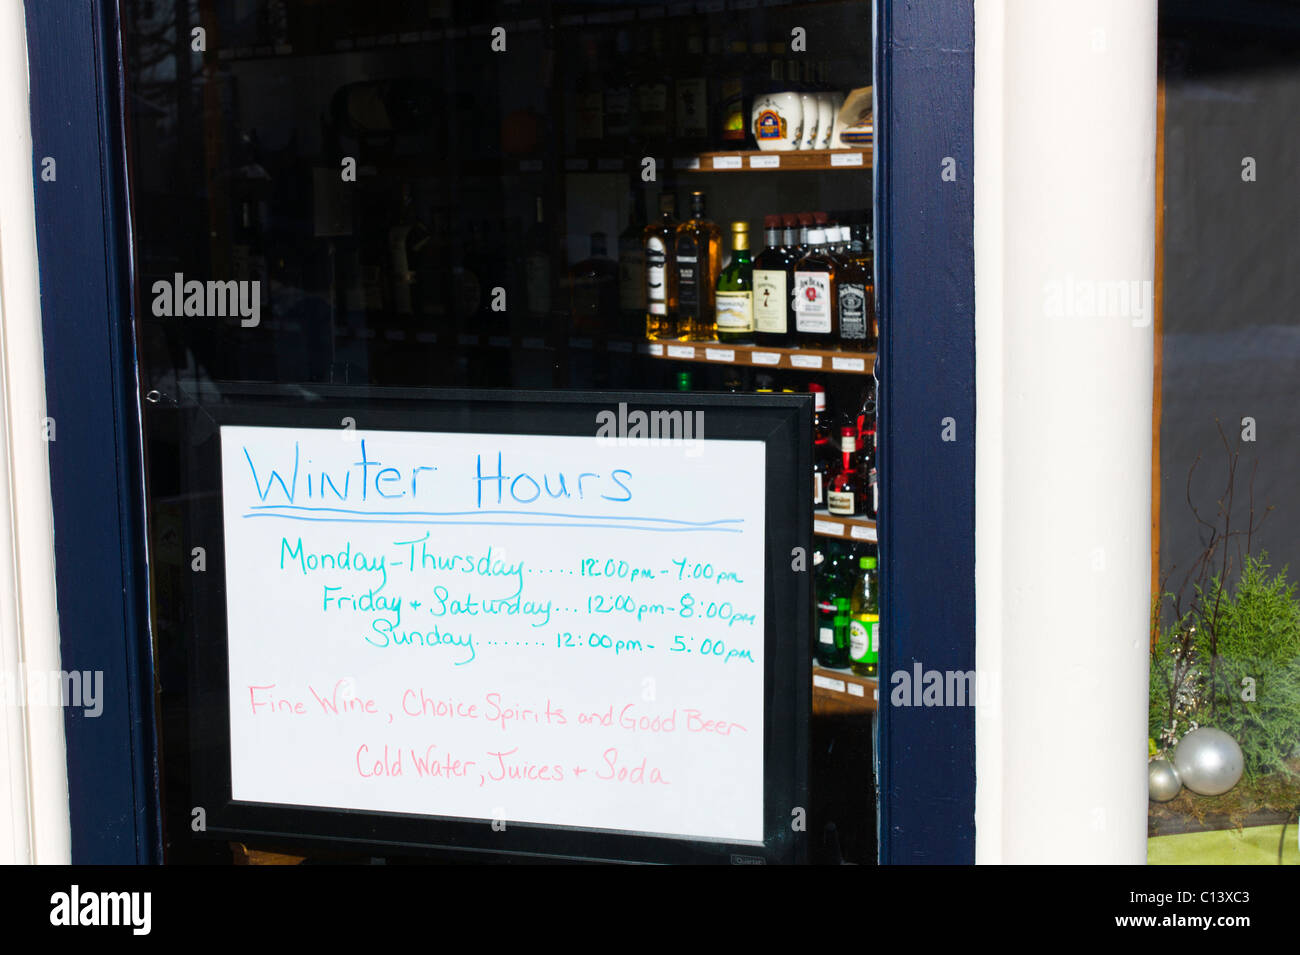 Winter Hours
Monday-Thursday.....12:00pm-7:00pm
Friday + Saturday...12:00pm-8:00pm
Sunday........12:00pm-5:00pm
Fine Wine, Choice Spirits and Good Beer
Cold Water, Juices + Soda
Quartet
JIM BEAM
7
alamy
www.alamy.com
Image ID: C13XC3